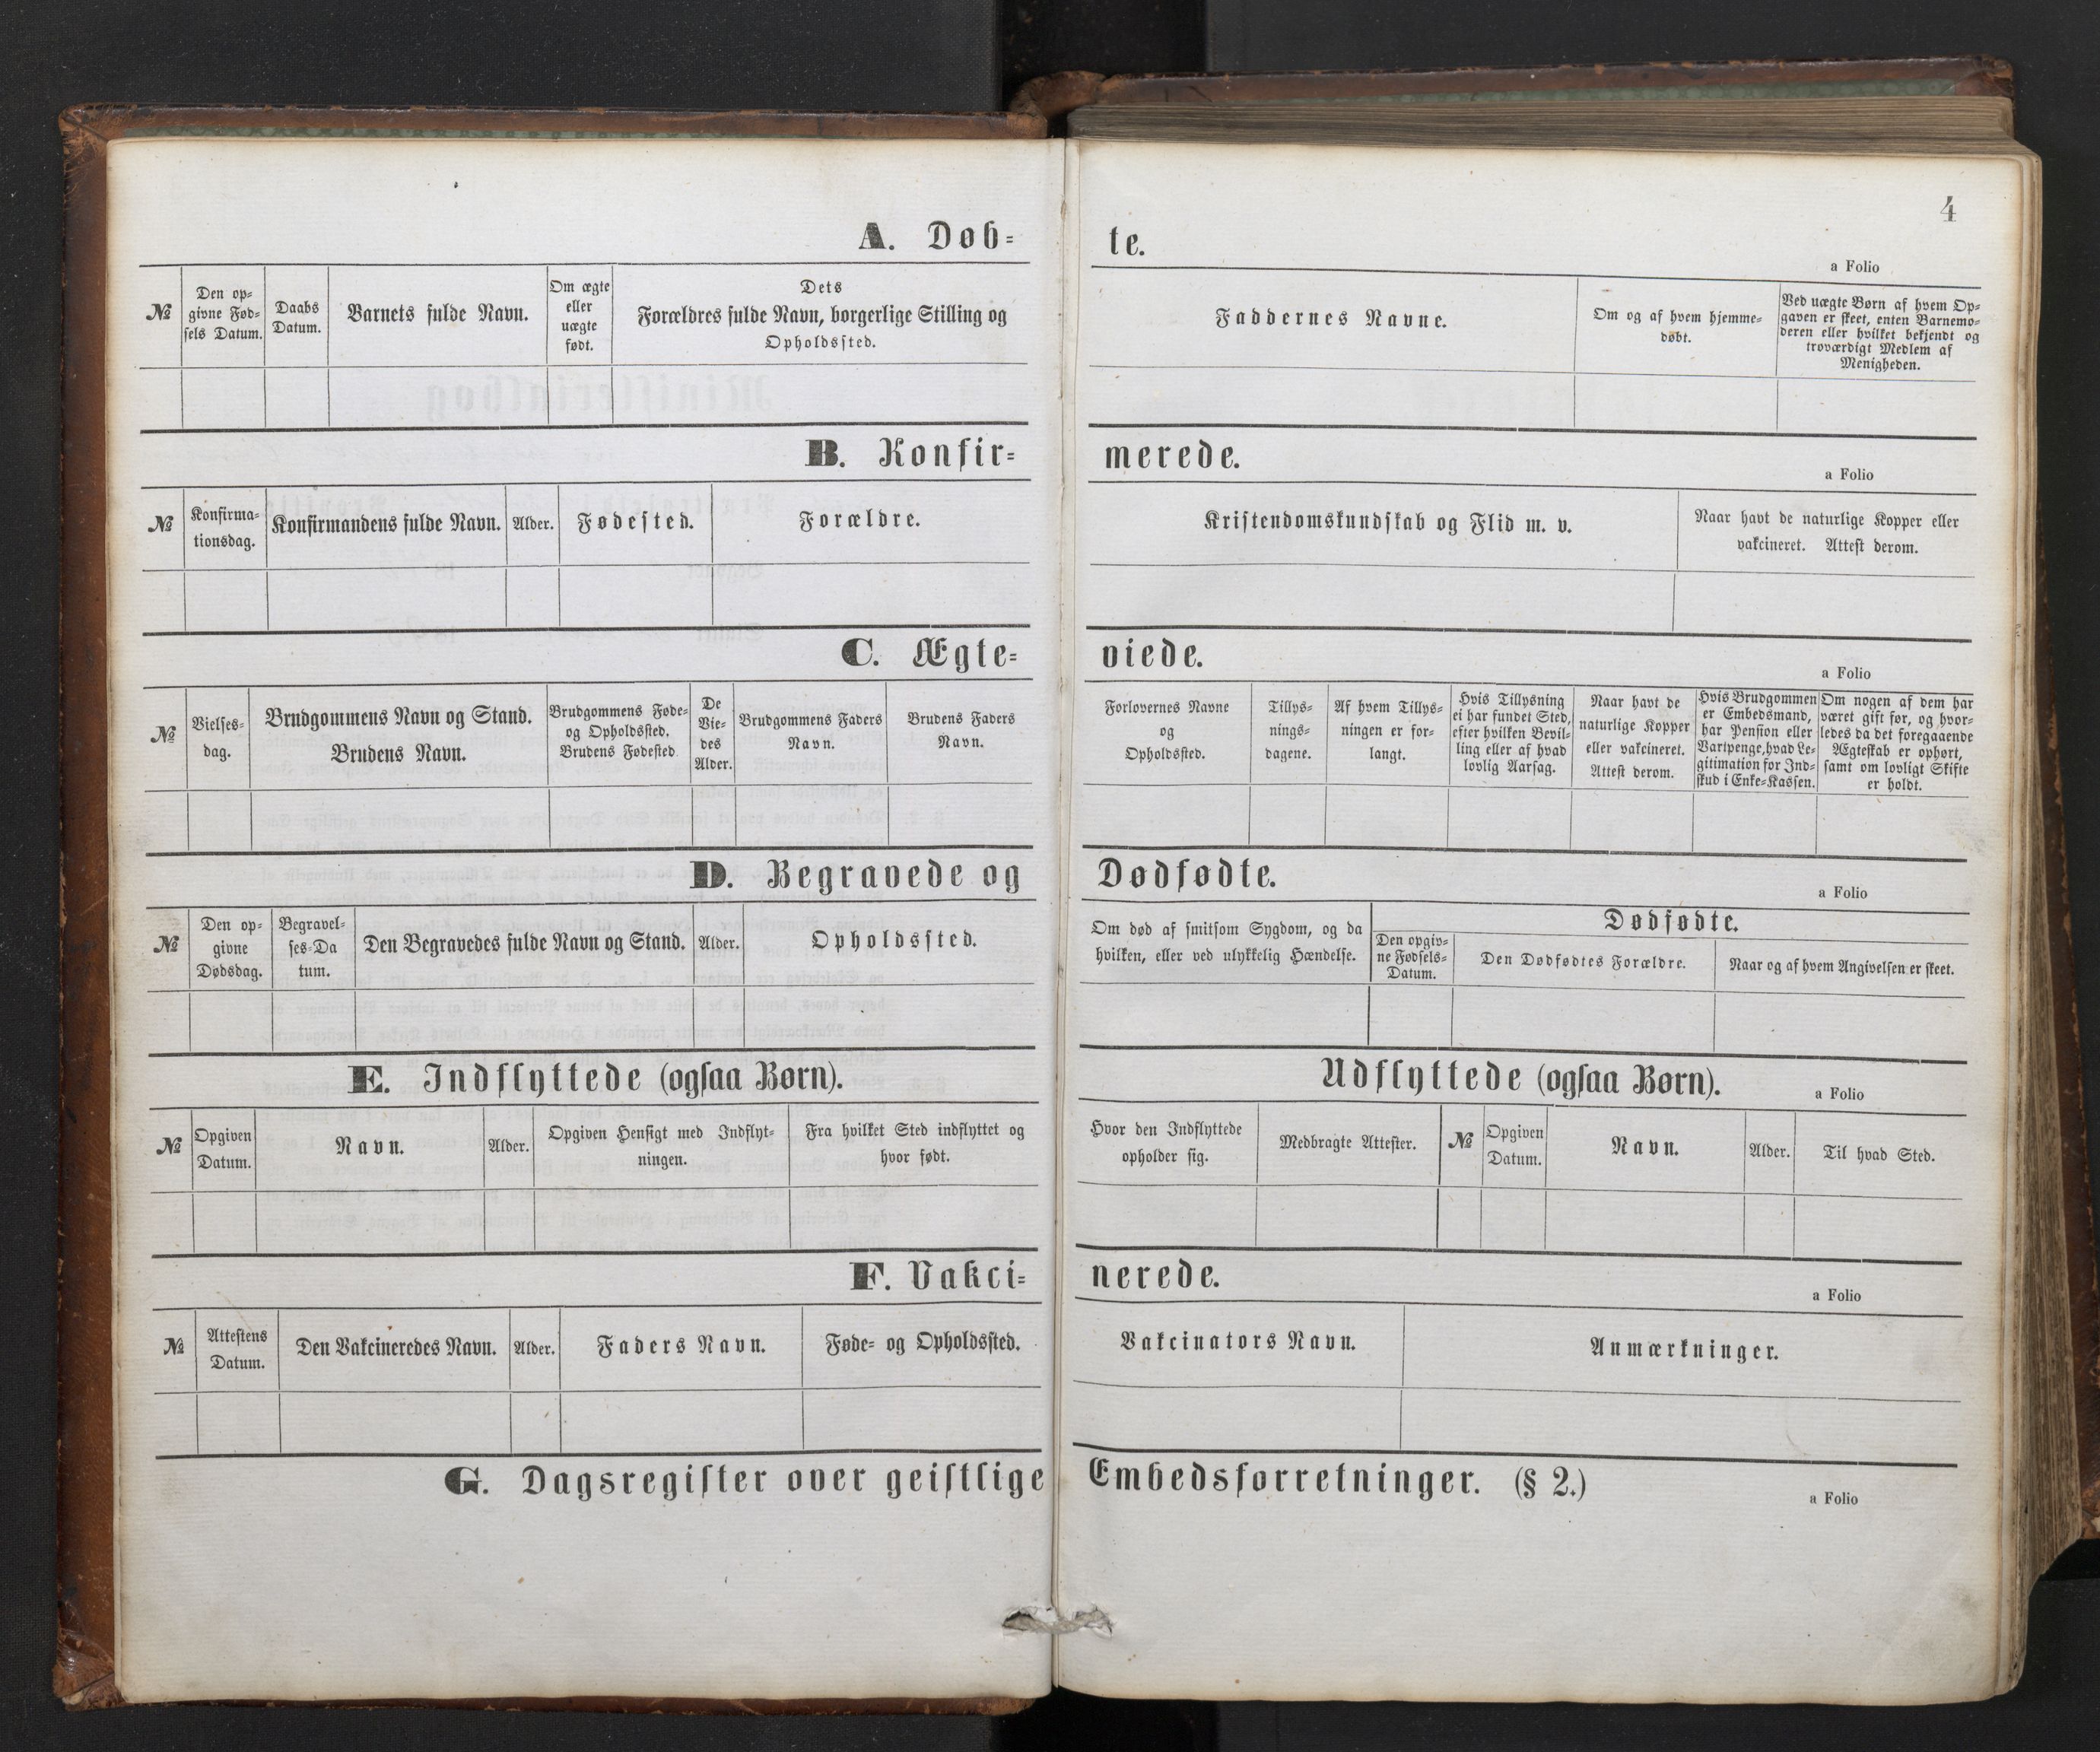 4
A. Døb-
te.
a Folio
№
Den op-
givne Fød-
sels Datum.
Daabs
Datum.
Barnets fulde Navn.
Om ægte
eller
uægte
født.
Dets
Forældres fulde Navn, borgerlige Stilling og
Opholdssted.
Faddernes Navne.
Om og af hvem hjemme-
døbt.
Ved uægte Børn af hvem Op-
gaven er skeet, enten Barnemo-
deren eller hvilket bekjendt og
troværdigt Medlem af
Menigheden.
B. Konfir-
merede.
a Folio
№
Konfirma-
tionsdag.
Konfirmandens fulde Navn.
Alder.
Fødested.
Forældre.
Kristendomskundskab og Flid m. v.
Naar havt de naturlige Kopper eller
vakcineret. Attest derom.
C. Ægte-
viede.
a Folio
№
Vielses-
dag.
Brudgommens Navn og Stand.
Brudens Navn.
Brudgommens Føde-
og Opholdssted.
Brudens Fødested
De
Vie-
des
Alder.
Brudgommens Faders
Navn.
Brudens Faders
Navn.
Forlovernes Navne
og
Opholdssted.
Tillys-
nings-
dagene.
Af hvem Tillys-
ningen er for-
langt.
Hvis Tillysning
ei har fundet Sted,
efter hvilken Bevil-
ling eller af hvad
lovlig Aarsag.
Naar havt de
naturlige Kopper
eller vakcineret.
Attest derom.
Hvis Brudgommen
er Embedsmand,
har Pension eller
Vartpenge, hvad Le-
gitimation for Ind-
skud i Enke-Kassen.
Om nogen af dem har
været gift før, og hvor-
ledes da det foregaaende
Ægteskab er ophørt,
samt om lovligt Skifte
er holdt.
D. Begravede og
Dødfødte.
a Folio
№
Den op-
givne
Dødsdag.
Begravel-
ses-Da
tum.
Den Begravedes fulde Navn og Stand.
Alder.
Opholdssted.
Om død af smitsom Sygdom, og da
hvilken, eller ved ulykkelig Hændelse.
Dødfødte.
Den opgiv-
ne Fødsels-
Datum.
Den Dødfødtes Forældre.
Naar og af hvem Angivelsen er skeet.
E. Indflyttede (ogsaa Børn).
Udflyttede (ogsaa Børn).
a Folio
№
Opgiven
Datum.
Navn.
Alder.
Opgiven Hensigt med Indflyt-
ningen.
Fra hvilket Sted indflyttet og
hvor født.
Hvor den Indflyttede
opholder sig.
Medbragte Attester.
№
Opgiven
Datum.
Navn.
Alder.
Til hvad Sted.
F. Vakci-
nerede.
a Folio
№
Attestens
Datum.
Den Vakcineredes Navn.
Alder.
Faders Navn.
Føde- og Opholdssted.
Vakcinators Navn.
Anmærkninger.
G. Dagsregister over geistlige
Embedsforretninger. (§ 2.)
a Folio